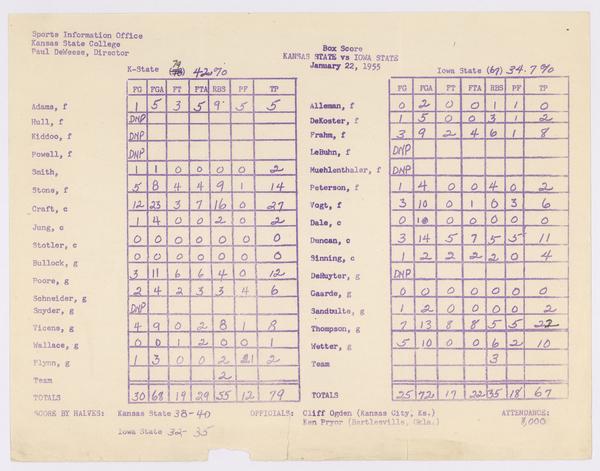 Sports Information Office
Kansas State College
Paul DeWeese, Director
Box Score
KANSAS STATE vs IOWA STATE
January 22, 1955
K-State 79 42%70
FG FGA FT FTA RBS PF TP
Adams, f 1 5 3 5 9 5 5
Hull, f DNP
Kiddoo, f DNP
Powell, f DNP
Smith, 1 1 0 0 0 0 2
Stone, f 5 8 4 4 9 1 14
Craft, c 12 23 3 7 16 0 27
Jung, c 1 4 0 0 2 0 2
Stotler, c 0 0 0 0 0 0 0
Bullock, g 0 0 0 0 0 0 0
Poore, g 3 11 6 6 4 0 12
Schneider, g 2 4 2 3 3 4 6
Snyder, g DNP
Vicens, g 4 9 0 2 8 1 8
Wallace, g 0 0 1 2 0 0 1
Flynn, g 1 3 0 0 2 1 2
Team 2
TOTALS 30 68 19 29 55 12 79
Iowa State (67) 34.7%
FG FGA FT FTA RBS PF TP
Alleman, f 0 2 0 0 1 1 0
DeKoster, f 1 5 0 0 3 1 2
Frahm, f 3 9 2 4 6 1 8
LeBuhn, f DNP
Muehlenthaler, f DNP
Peterson, f 1 4 0 0 4 0 2
Vogt, f 3 10 0 1 0 3 6
Dale, c 0 1 0 0 0 0 0
Duncan, c 3 14 5 7 5 5 11
Sinning, c 1 2 2 2 2 0 4
DeRuyter, g DNP
Gaarde, g 0 0 0 0 0 0 0
Sandbulte, g 1 2 0 0 0 0 2
Thompson, g 7 13 8 8 5 5 22
Wetter, g 5 10 0 0 6 2 10
Team 3
TOTALS 25 72 17 22 35 18 67
SCORE BY HALVES: Kansas State 38-40
Iowa State 32-35
OFFICIALS: Cliff Ogden (Kansas City, Ks.)
Ken Pryor (Bartlesville, Okla.)
ATTENDANCE:
8,000